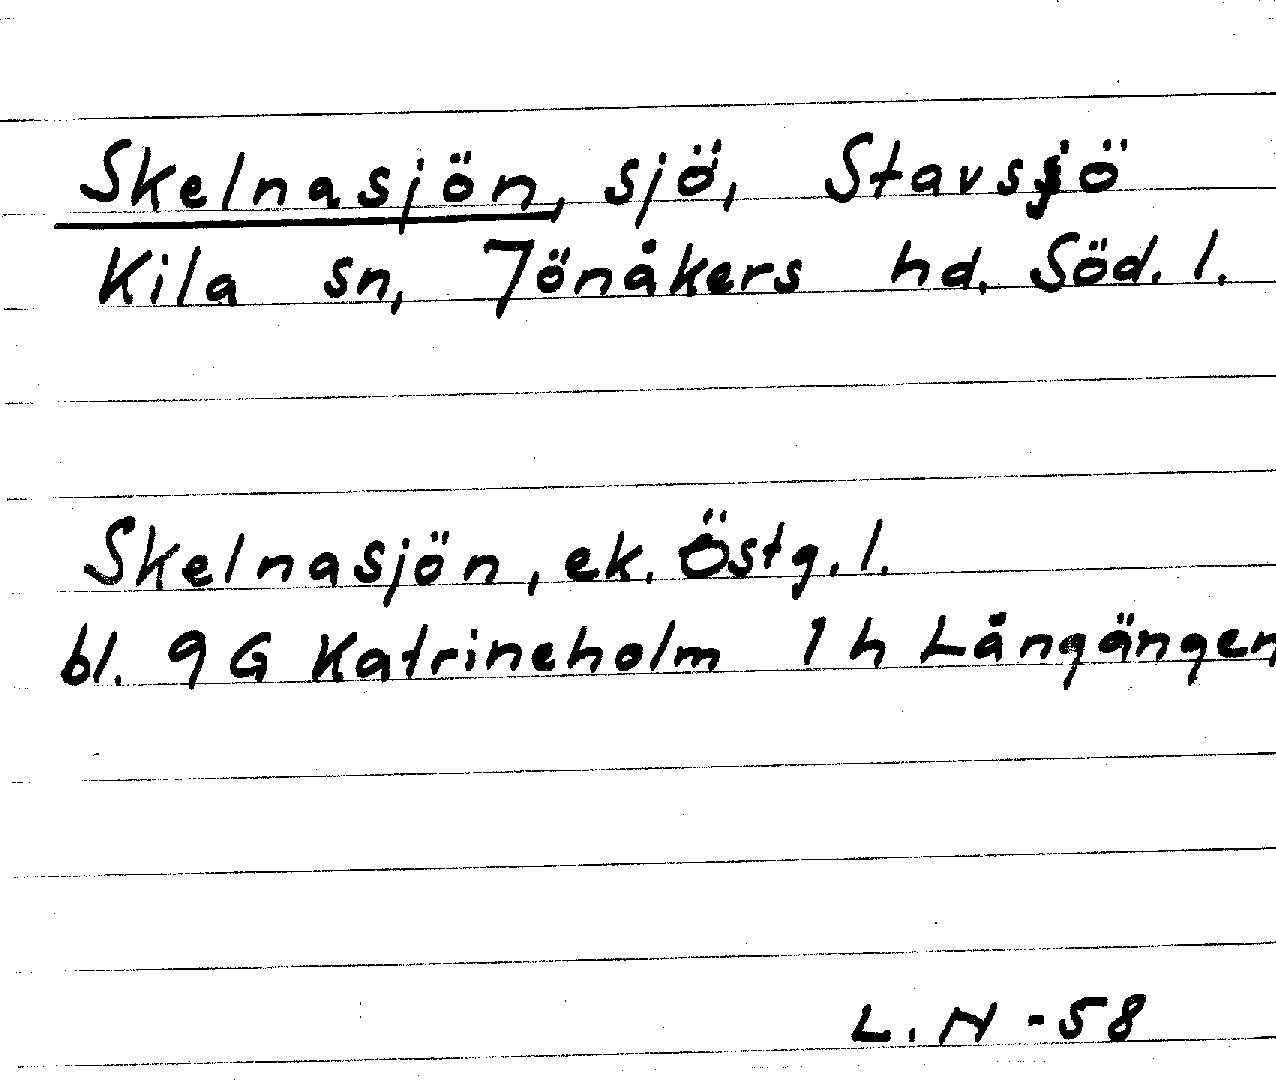 Skelnasjön, sjö, Stavsjö
Kila sn, Jönåkers hd. Söd. l.
Skelnasjön, ek. Östg. l.
bl. 9 G Katrineholm 1 h Långängen
L. N -58